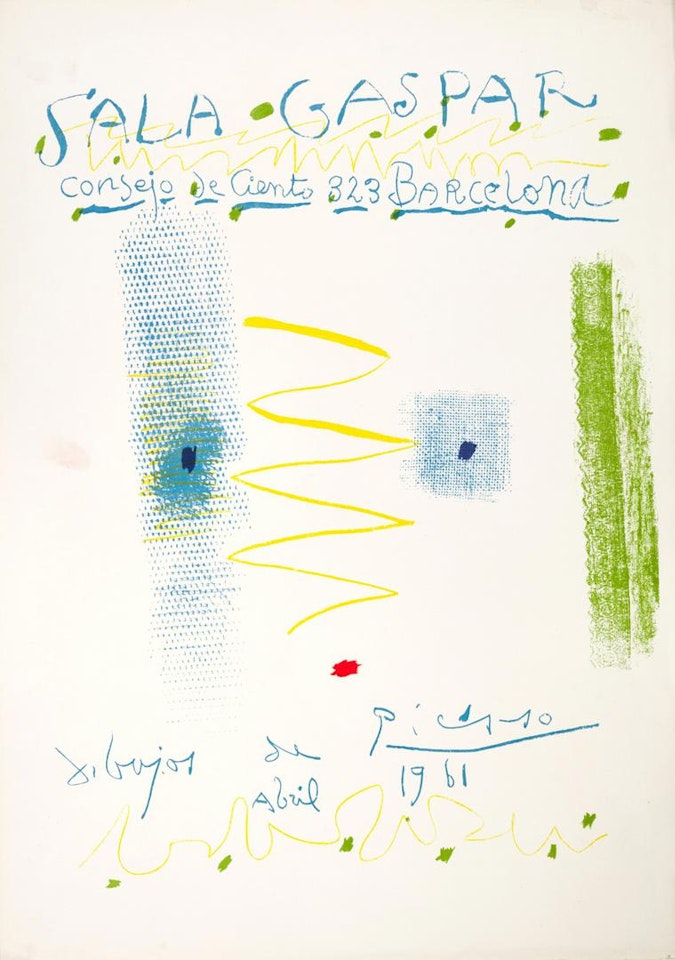 SALA GASPAR
Consejo de Ciento 323 BARCelona
Dibujos de Picasso
Abril 1961